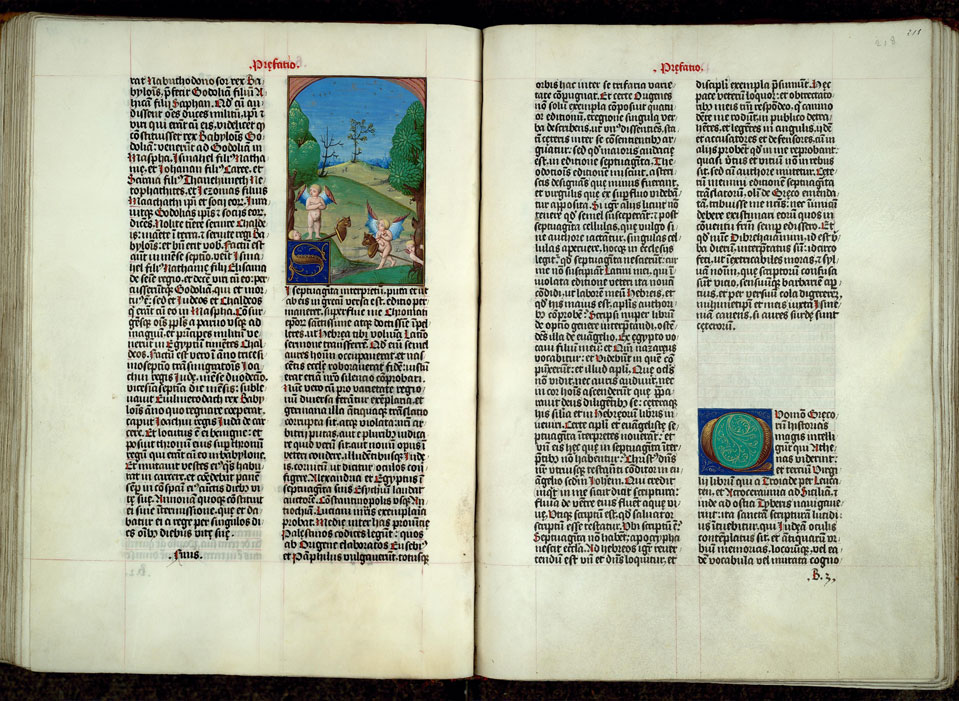 .Prefatio.
rat Nabuchodonosor rex Ba
bylonis, p̃fecit Godoliã filiũ A
hicã filij Saphan. Qd̃ cũ au
dissent oẽs duces militũ, ipsi &
viri qui erãt cũ eis, videlicet qp
cõstituisset rex Babylonis Go
doliã: venerũt ad Godoliã in
Maspha. Ismahel fili⁹ Natha
niẹ, et Iohanan fili⁹ Caree, et
Saraia fili⁹ Thanehumeth Ne
tophathites, et Iezonias filius
Maachathi ipsi et socij eorr̃. Iura
uitqꝫ Godolias ipsis & socijs eorr̃,
dicẽs. Nolite timere seruire Chalde
is: manete ĩ terra, & seruite regi Ba
bylonis: et bñ erit vob̃. Factũ est
aut̃ in mẽse septiõ, venit Isma
hel fili⁹ Nathaniẹ, filij Elisama
de semĩe regio, et decẽ viri cũ eo: per
cusserũtqꝫ Godoliã, qui et mor
tu⁹ ẽ: sed et Iudeos et Chaldeos
q̃ erãt cũ eo in Maspha. Cõsur
gẽsqꝫ oĩs ppl̃s a paruo vsqꝫ ad
magnũ, et principes militũ ve
nerũt in Egyptũ timẽtes Chal
deos. Factũ est vero ĩ ãno trice si
mo septio trãsmigratiõis Ioa
chin regis Iudẹ, mẽse duodecio,
vicesiaseptia die mẽsis: suble
uauit Euilmerodach rex Baby
lonis ãno quo regnare coeperat,
caput Ioachin regis Iudà de car
cere. Et locutus ẽ ei benigne: et
posuit thronũ eius sup thronũ
regũ qui erãt cũ eo in babylone.
Et mutauit vestes ei⁹ qs̃ habu
rat in carcere, et cõedebat panẽ
semp̃ in cõspctũ ei⁹ cũctis dieb⁹ vi
tẹ suẹ. Annonã quoqꝫ cõstituit
ei sine ĩtermissione, quẹ et da
batur ei a rege per singulos di
es oĩb⁹ dieb⁹ vitẹ suẹ.
. Finis.
S
I septuagĩta interpretũ, pura et ut
ab eis in grẹcũ versa est, editio per
maneret, supersfue me Chromati
ep̃orr̃ sanctissime atqꝫ doctissie ĩpel
leres, ut Hebrea tibi voluĩa Latio
sermone trãsferrẽ. Qd̃ eni semel
aures hoĩm occupauerat, et nas
cẽtis eccliẹ roborauerat fidẽ: iustũ
erat etiã nr̃o silentio cõprobari.
Nũc vero cũ pro varietate regio
nũ diuersa ferãtur exẽplaria, et
germana illa ãtiquaqꝫ trãslatio
corrupta sit, atqꝫ violata: nr̃i ar
bitrij putas, aut e plurib⁹ iudica
re quid verũ sit: aut nouũ opus ĩ
veteri condere, illudentibusqꝫ Iude
is, cornicũ ut dicitur oculos con
figere. Alexandria et Egyptus ĩ
septuagĩta suis Esychiũ laudat
auctorẽ. Constantinopolis vsqꝫ An
tiochiã, Luciani mr̃is exemplaria
probat. Mediẹ inter has prouiciẹ
Palestinos codices legũt: quos
ab Origene elaboratos Euseb⁹
et Pãphilus vulgauerut. totusqꝫ
218
218
.Prefatio.
orbis hac inter se trifaria varie
tate cõpugnat. Et certe Origenes
nõ solũ exempla cõposuit quatu
or editionũ, e regione singula ver
ba describens, ut vn⁹ dissentiẽs, sta
tĩ ceteris inter se cõsentientib⁹ ar
guatur: sed qd̃ maioris audatiẹ
est, in editione septuagita, The
odotionis editionẽ miscuit, asteri
scis designãs quẹ minus fuerant,
et virgulis quẹ ex sup̃fluo videbã
tur apposita. Si igr̃ alijs licuit nõ
tenere qd̃ semel susceperãt: & post
septuagĩta cellulas, quẹ vulgo si
ne authore iactãtur, singulas cel
lulas aperuere, hocqꝫ in ecclesijs
legit̃, qd̃ septuagĩta nescierũt: cur
me nõ suscipiant Latini mei, qui ĩ
violata editione veteri ita nouã
cõdidi, ut laborẽ meũ Hebreis, et
qd̃ his maius est, aplis̃ authorib
bs̃ cõprobẽ? Scripsi nuper librũ
de optio genere interpretandi, ostẽ
dẽs illa de euãgelio. Ex egypto vo
caui filiũ meũ: et Qm̃ nazareus
vocabitur: et Videbũt in quẽ cõ
pũxerũt: et illud apli. Que ocl̃s
nõ vidit, nec auris audiuit, nec
in cor hoĩs ascenderũt quẹ p̃pa
rauit deus diligẽtib⁹ se: cẹteraqꝫ
his silia et in Hebreorũ libris in
ueniri. Certe apli et euãgelistẹ se
ptuagĩta ĩterpretes nouerãt: et
vñ eis hẹc quẹ in septuagĩta ĩter
prtib⁹ nõ habentur? Christ⁹ dñs
ñr vtriusqꝫ testamti cõditor in eu
ãgelio scd̃m Iohem. Qui credit
inqt̃ in me sicut dicit scriptura:
flumĩa de vẽtre eius fluẽt aque vi
uẹ. Vtiqꝫ scriptũ est, qd̃ saluator
scriptũ esse testatur. Vbi scriptũ ẽ?
Septuagĩta nõ habẽt, apocrypha
nescit eccl̃a. Ad hebreos igr̃ reuer
tendũ est: vn̄ et dñs loquitur, et
discipli̇ exempla p̃sumũt. Hẹc
pace veterũ loquor: et obtrectato
ribus meis tm̃ respõdeo, q̃ canino
dẽte me rodũt, in publico detra
hẽtes, et legẽtes in angulis, iidẽ
et accusatores et defensores, cũ in
alijs probẽt qd̃ in me reprobant:
quasi v̓tus et vitiũ non in rebus
sit, sed cũ authore mutetur. Cete
rũ memini editionẽ septuagĩta
trãslatorũ, olĩ de Grẹco emenda
tã, tribuisse me nr̃is: nec ĩimicũ
debere existimari eorũ quos in
cõuentu fratrũ semper edissero. Et
qd̃ nũc Dibreiaiamin, id est v̓
ba dierũ, interp̃tatus sũ: idcirco
feci, ut ĩextricabiles moras, & syl
uas nomĩũ, quẹ scriptorũ confusa
sunt vitio, sensuũqꝫ barbarie aper
tius, et per versuũ cola digererem,
mihimetipsi et meis iuxta Isme
niã canens, si aures surdẹ sunt
cẹterorum.
Q
Vomõ Greco
rũ historias
magis intelli
gũt qui Athe
nas viderint:
et tertiũ Virgi
lij librum qui a Troiade per Leuca
ten, et Acroceraunia ad Siciliã, &
inde ad ostia Tyberis nauigaue
runt: ita sanctam scripturam lucidi
us ĩtuebitur, qui Iudẹam oculis
contemplatus sit, et antiquarũ vr
bium memorias, locorũqꝫ, vel ea
dẽ vocabula vel mutata cogno
. B. 3,